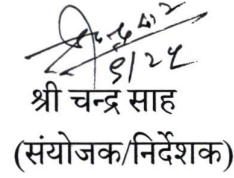 ९/२५
श्री चन्द्र साह
(संयोजक/निर्देशक)